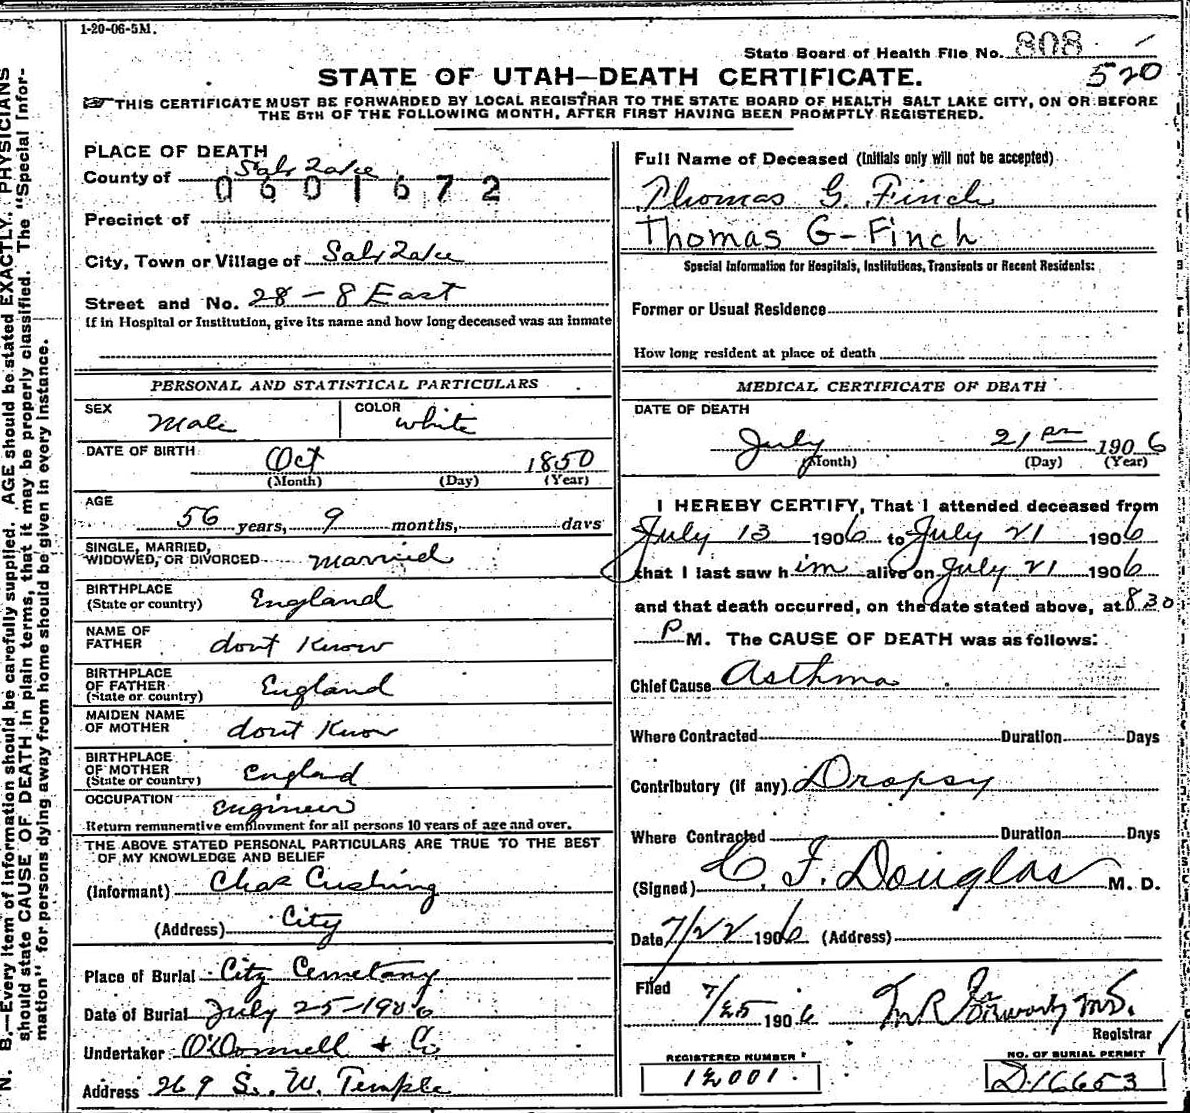 1-20-06-5M.
State Board of Health File No. 808
520
STATE OF UTAH—DEATH CERTIFICATE.
THIS CERTIFICATE MUST BE FORWARDED BY LOCAL REGISTRAR TO THE STATE BOARD OF HEALTH SALT LAKE CITY, ON OR BEFORE
THE 5TH OF THE FOLLOWING MONTH, AFTER FIRST HAVING BEEN PROMPTLY REGISTERED.
PLACE OF DEATH
County of Salt Lake
0601672
Precinct of
City, Town or Village of Salt Lake
Street and No. 28 - 8 East
If in Hospital or Institution, give its name and how long deceased was an inmate
Full Name of Deceased (Initials only will not be accepted)
Thomas G. Finch
Thomas G-Finch
Special Information for Hospitals, Institutions, Transients or Recent Residents:
Former or Usual Residence
How long resident at place of death
PERSONAL AND STATISTICAL PARTICULARS
SEX Male
COLOR white
DATE OF BIRTH Oct 1850
(Month) (Day) (Year)
AGE
56 years, 9 months, days
SINGLE, MARRIED,
WIDOWED, OR DIVORCED married
BIRTHPLACE
(State or country) England
NAME OF
FATHER dont Know
BIRTHPLACE
OF FATHER
(State or country) England
MAIDEN NAME
OF MOTHER dont Know
BIRTHPLACE
OF MOTHER
(State or country) England
OCCUPATION engineer
Return remunerative employment for all persons 10 years of age and over.
THE ABOVE STATED PERSONAL PARTICULARS ARE TRUE TO THE BEST
OF MY KNOWLEDGE AND BELIEF
(Informant) Chas Cushing
(Address) City
Place of Burial City Cemetany
Date of Burial July 25-1906
Undertaker O'Donnell + Co
Address 269 S. W. Temple
MEDICAL CERTIFICATE OF DEATH
DATE OF DEATH
July 21 pm 1906
(Month) (Day) (Year)
I HEREBY CERTIFY, That I attended deceased from
July 13 1906 to July 21 1906
that I last saw him alive on July 21 1906
and that death occurred, on the date stated above, at 830
P M. The CAUSE OF DEATH was as follows:
Chief Cause Asthma
Where Contracted Duration Days
Contributory (if any) Dropsy
Where Contracted Duration Days
(Signed) C. F. Douglas M. D.
Date 7/22 1906 (Address)
Filed 7/25 1906
Registrar
REGISTERED NUMBER
12001.
NO. OF BURIAL PERMIT
D-16653
N. B.—Every item of information should be carefully supplied. AGE should be stated EXACTLY. PHYSICIANS
should state CAUSE OF DEATH in plain terms, that it may be properly classified. The "Special Infor-
mation" for persons dying away from home should be given in every instance.